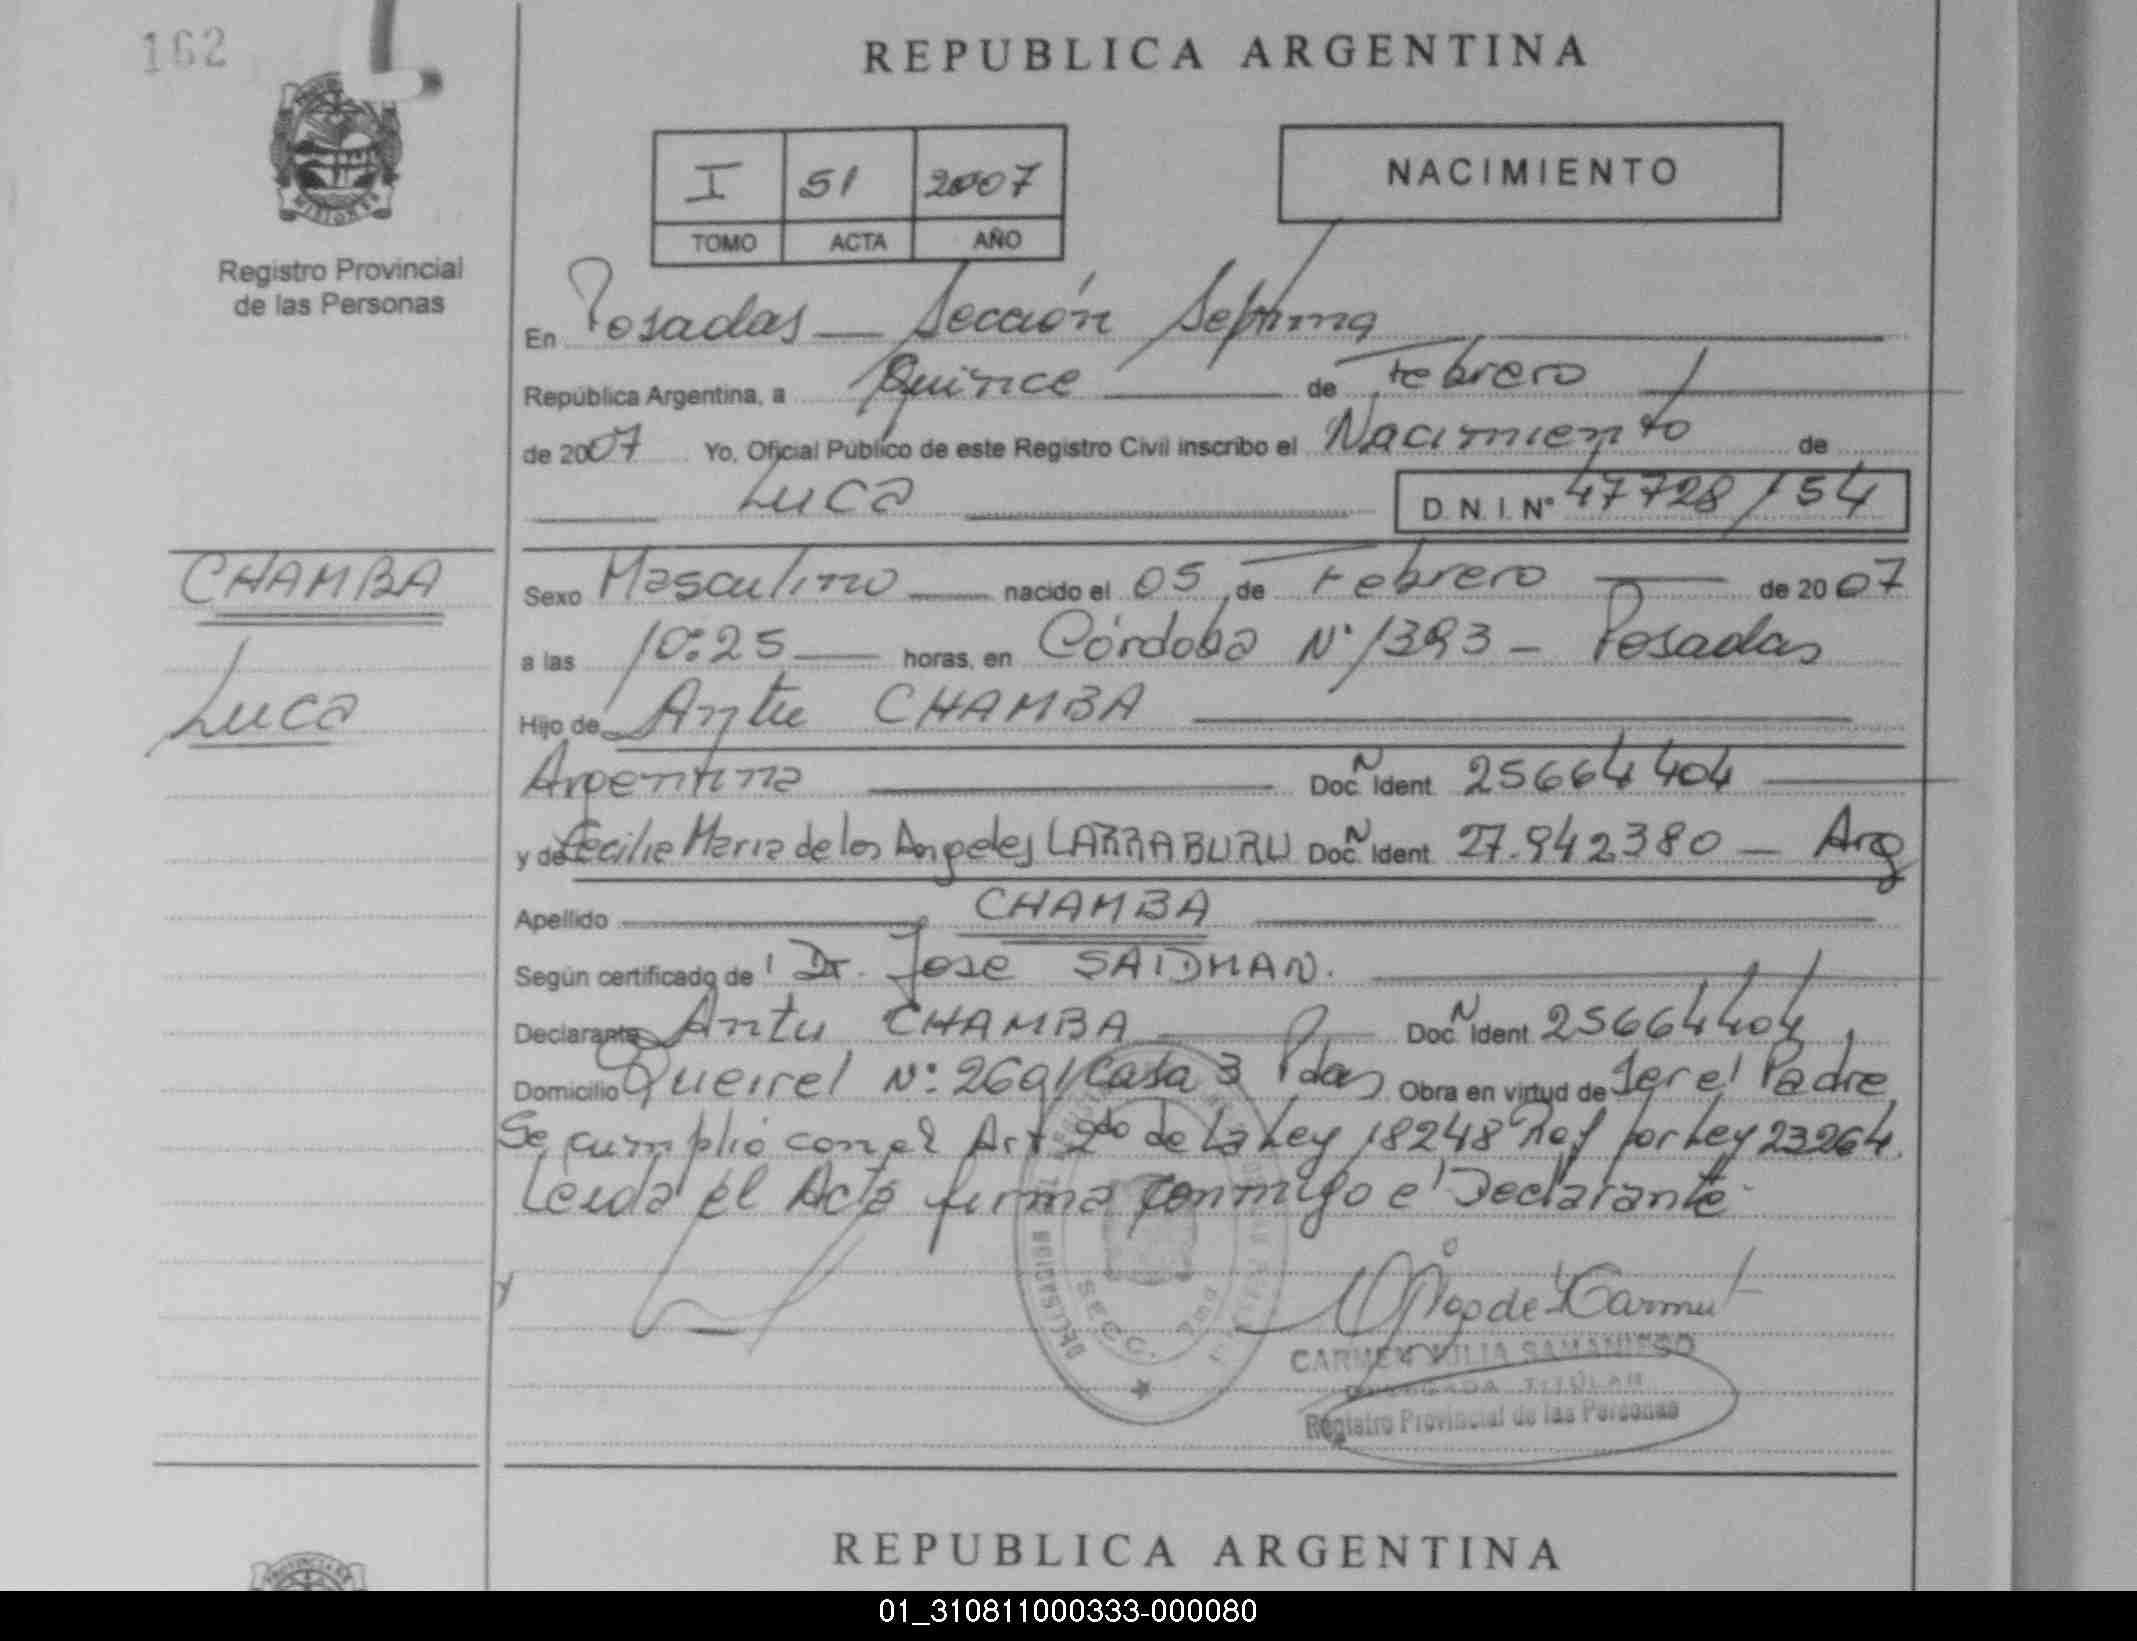 162
REPUBLICA ARGENTINA
I 51 2007
TOMO ACTA AÑO
NACIMIENTO
MISIONES
Registro Provincial
de las Personas
En Posadas — Sección Septima
República Argentina, a Quince de Febrero
de 2007 Yo, Oficial Público de este Registro Civil inscribo el Nacimiento de
Luca D.N.I. N° 47728154
CHAMBA
Luca
Sexo Masculino nacido el 05 de Febrero de 2007
a las 10:25 horas, en Córdoba N° 1393 - Posadas
Hijo de Antu CHAMBA
Argentina Doc. N Ident. 25664404
y de Cecilia Maria de los Angeles LARRABURU Doc. N Ident. 27.942380 — Arg
Apellido CHAMBA
Según certificado de Dr. Jose SAIDMAN.
Declarante Antu CHAMBA Doc. N Ident. 25664404
Domicilio Queirel N°: 2691 Casa 3 Pdas Obra en virtud de Ser el Padre
Se cumplio con el Art 2do de la Ley 18248 Ref por Ley 23264.
Leida el Acta firma conmigo el Declarante
SECC. 7ma
CARMEN JULIA SAMANIEGO
DELEGADA TITULAR
Registro Provincial de las Personas
REPUBLICA ARGENTINA
01_310811000333-000080